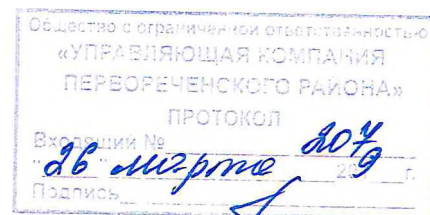 Общество с ограниченной ответственностью
«УПРАВЛЯЮЩАЯ КОМПАНИЯ
ПЕРВОРЕЧЕНСКОГО РАЙОНА»
ПРОТОКОЛ
Входящий №
"26" марта 20 г.
Подпись